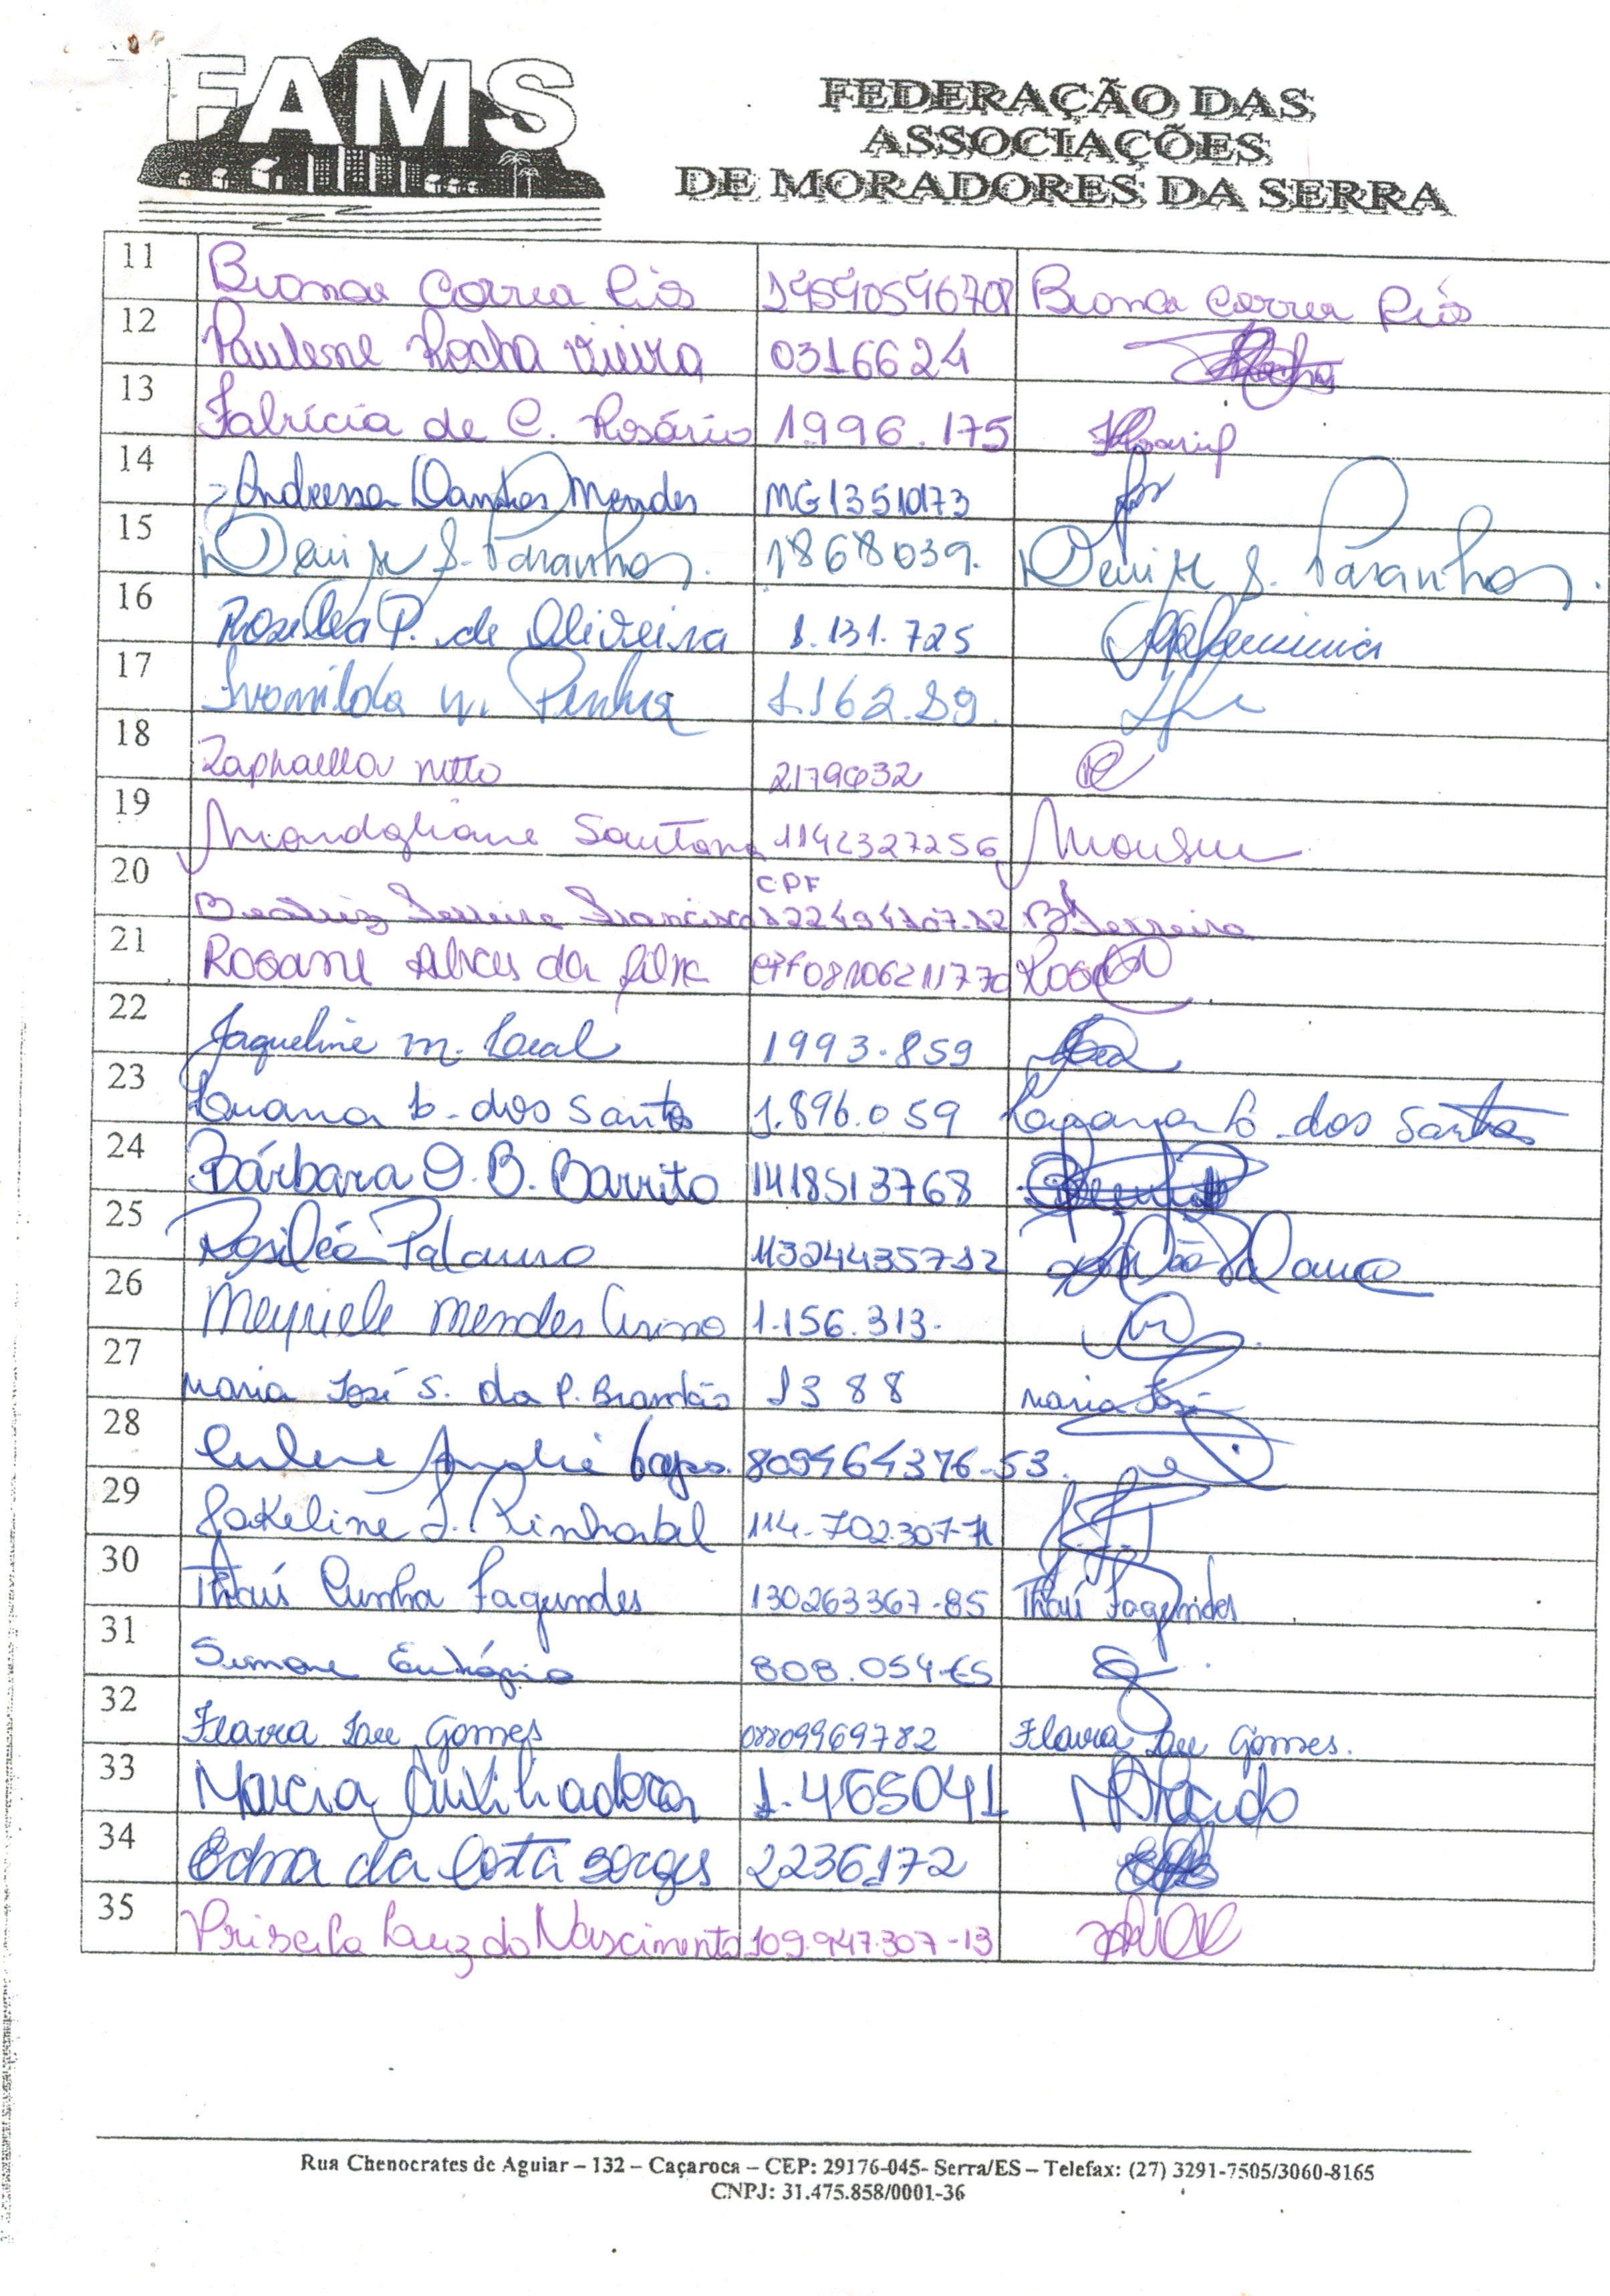 FAMS
FEDERAÇÃO DAS
ASSOCIAÇÕES
DE MORADORES DA SERRA
11 Bianca Correa Riós Bianca Correa Riós
12 Paulene Rocha Vieira 0316624
13 Fabrícia de C. Rosário 1996.175
14 Andressa Dantas Mendes MG13510173
15 Denise S. Paranhos. 1868039. Denise S. Paranhos.
16 Rosiléa P. de Oliveira 1.131.725
17 Ivanilda M. Penha 1.162.89.
18 Raphaella Netto
19 Santana 1142327256
20 Beatriz Ferreira Francisco CPF 122494107-12 B Ferreira
21 Rosane Alves da Silva CPF
22 Jaqueline M. Leal 1993.859
23 Luana b. dos Santos 1.896.059 b. dos Santos
24 Bárbara O. B. Barrito 1418513768
25 Rosiléa Palauro 11324435712
26 Meyriele Mendes 1.156.313.
27 Maria José S. da P. Brandão 1388 Maria José
28 809464376-53.
29 Jakeline S. 114.702.307-71
30 Thaís Cunha Fagundes 130263367-85 Thaís Fagundes
31 Simone Eutrópio 808.054-ES
32 Flavia Gomes Flavia Gomes.
33 Marcia Auxiliadora 1.465041
34 Edna da Costa Borges 2236172
35 Priscila Luz do Nascimento 109.947.307-13
Rua Chenocrates de Aguiar – 132 – Caçaroca – CEP: 29176-045- Serra/ES – Telefax: (27) 3291-7505/3060-8165
CNPJ: 31.475.858/0001-36